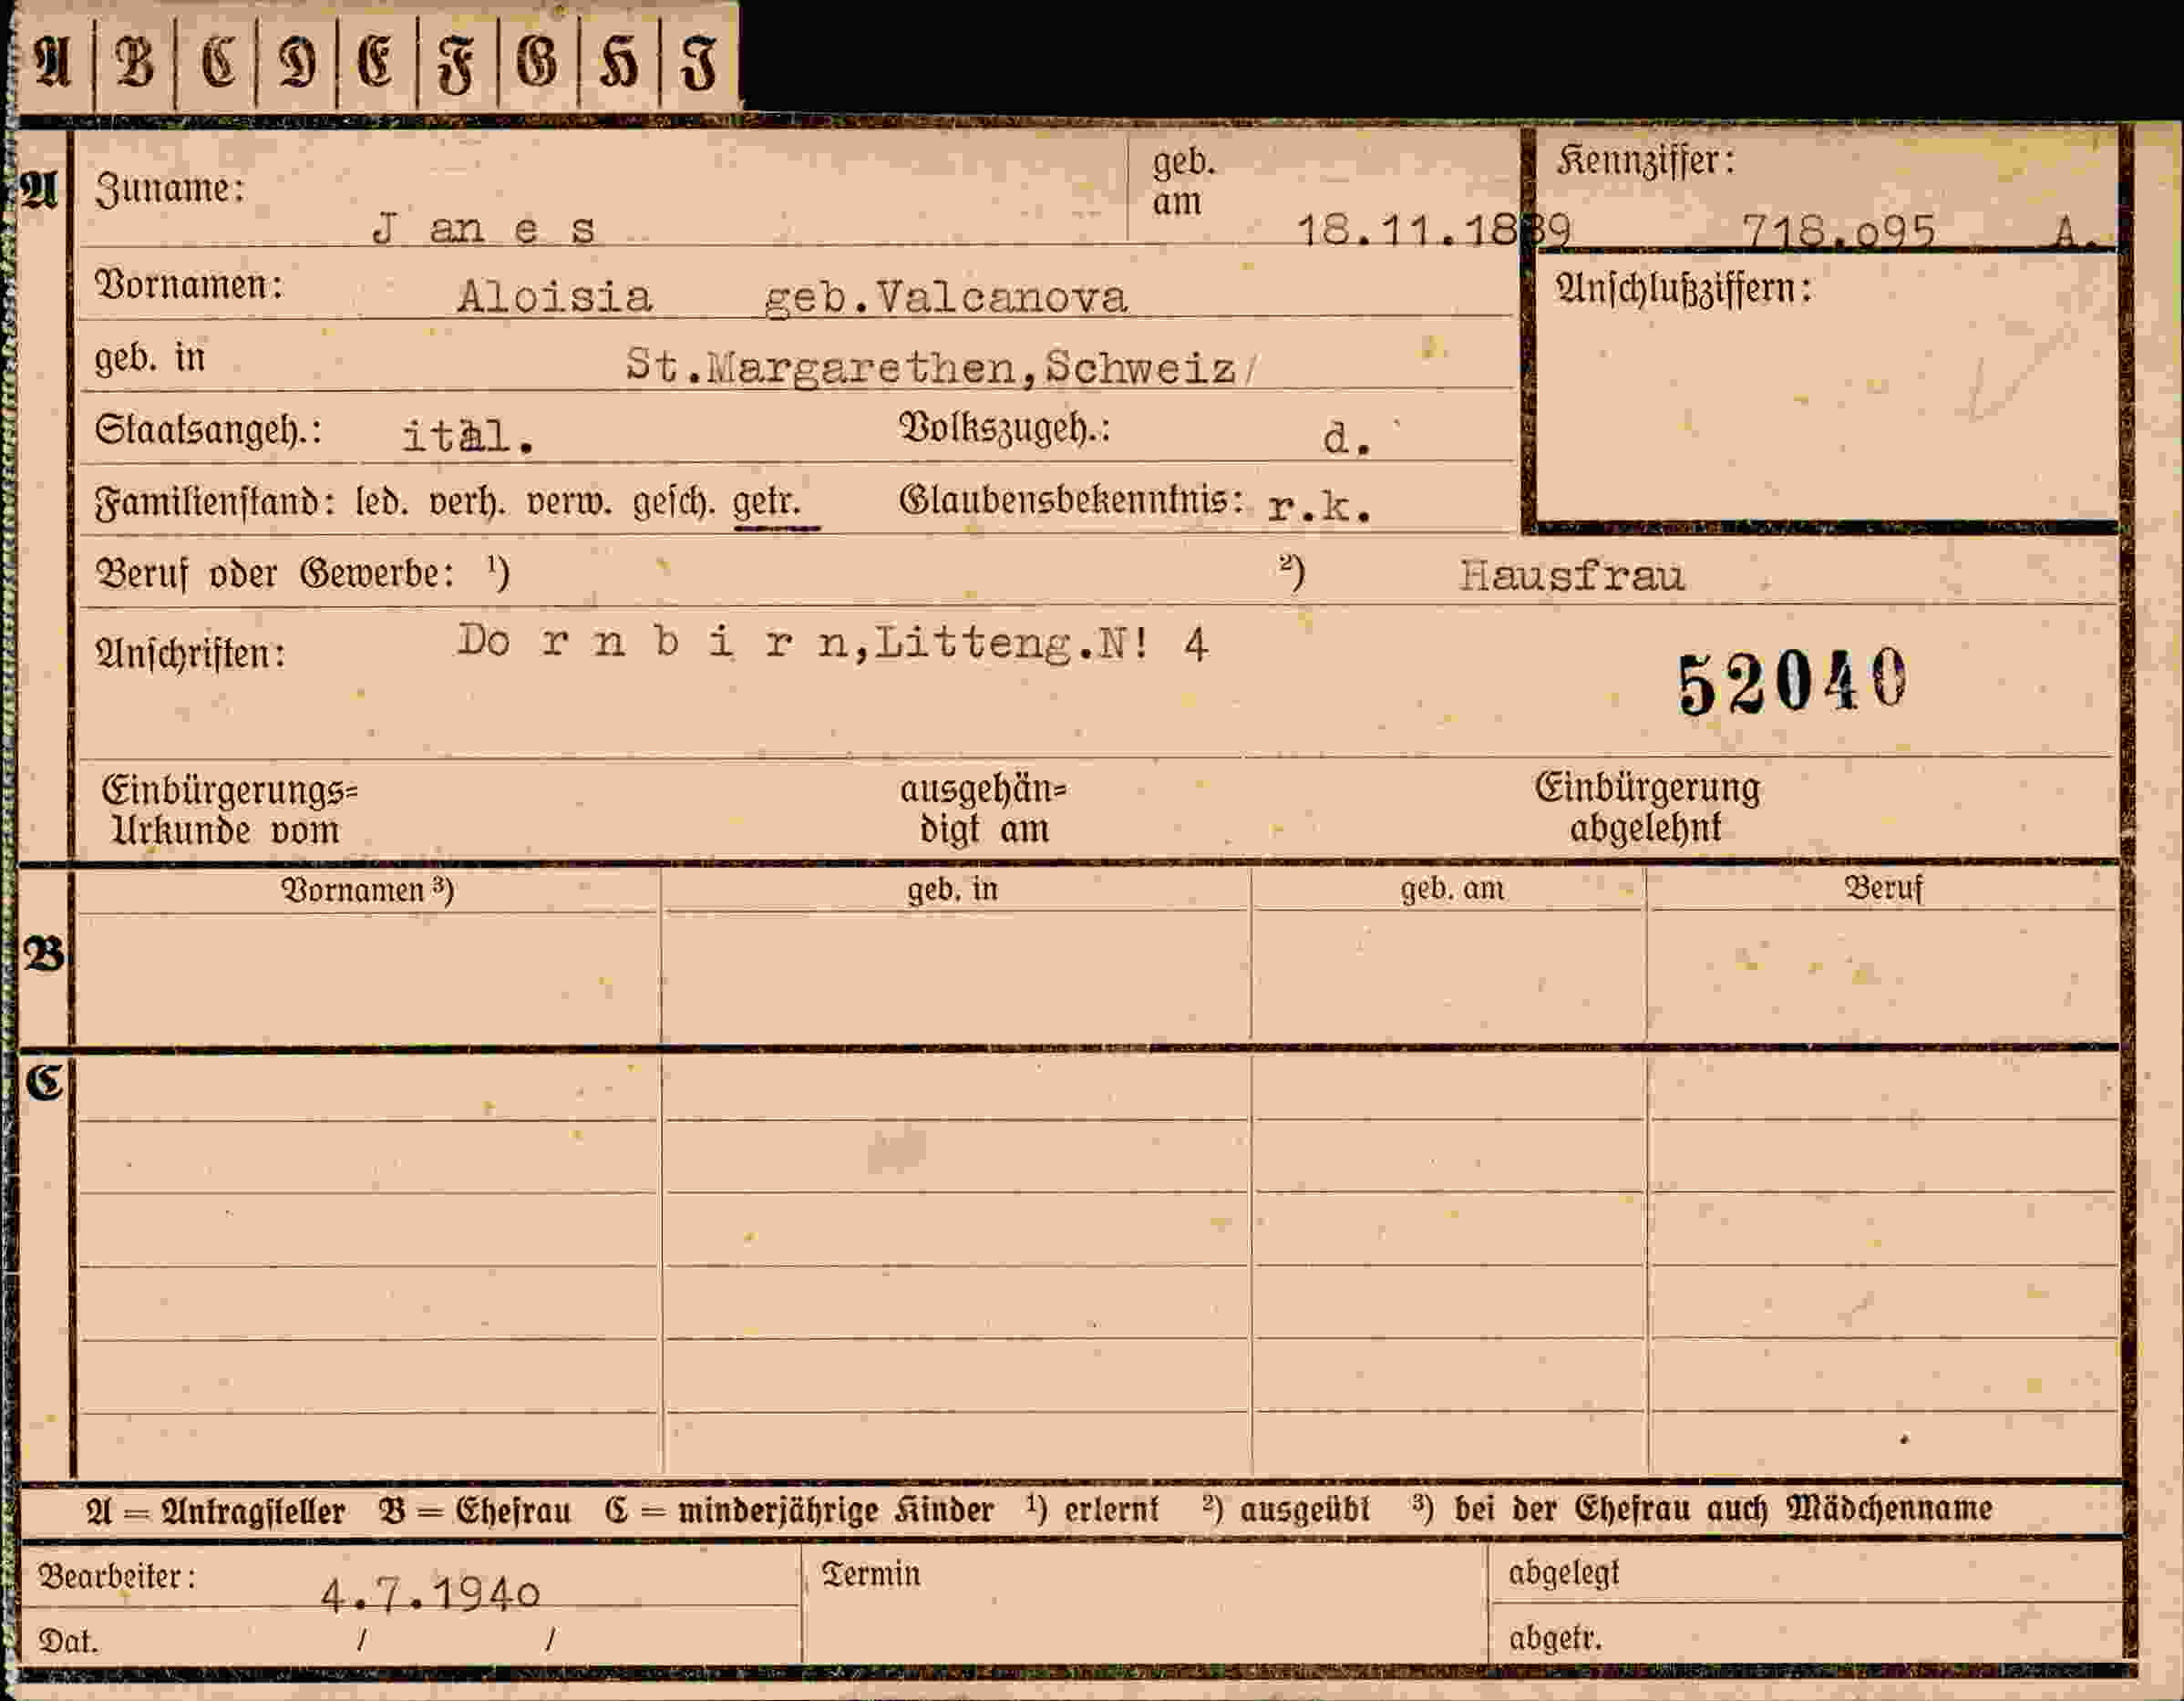 A B C D E F G H I
A Zuname: J an e s geb. am 18.11.1889 Kennziffer: 718.o95 A.
Vornamen: Aloisia geb.Valcanova Anschlußziffern:
geb. in St.Margarethen,Schweiz/
Staatsangeh.: ital. Volkszugeh.: d.
Familienstand: led. verh. verw. gesch. getr. Glaubensbekenntnis: r.k.
Beruf oder Gewerbe: ¹) ²) Hausfrau
Anschriften: Do r n b i r n,Litteng.N! 4
52040
Einbürgerungs= ausgehän= Einbürgerung
Urkunde vom digt am abgelehnt
Vornamen ³) geb. in geb. am Beruf
B
C
A = Antragsteller B = Ehefrau C = minderjährige Kinder ¹) erlernt ²) ausgeübt ³) bei der Ehefrau auch Mädchenname
Bearbeiter: 4.7.194o Termin abgelegt
Dat. / / abgetr.